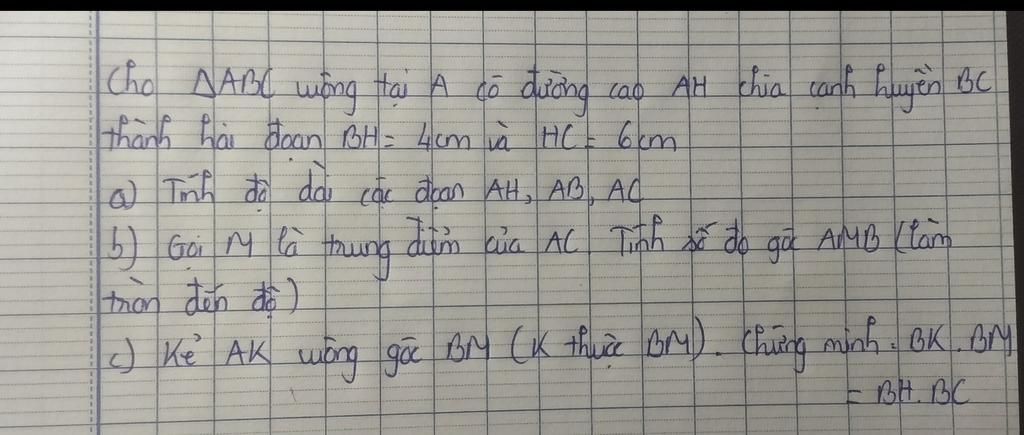 Cho ΔABC vuông tại A có đường cao AH chia cạnh huyền BC
thành hai đoạn BH = 4cm và HC = 6cm
a) Tính độ dài các đoạn AH, AB, AC
b) Gọi M là trung điểm của AC Tính số đo góc AMB (làm
tròn đến độ)
c) Kẻ AK vuông góc BM (K thuộc BM). Chứng minh: BK.BM
= BH.BC